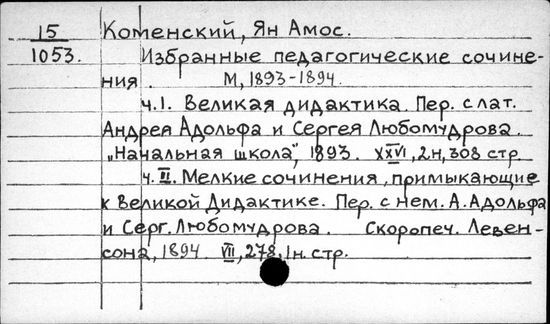 15 Коменский, Ян Амос.
1053. Избранные педагогические сочине-
ния. М, 1893-1894.
ч.I. Великая дидактика. Пер. с лат.
Андрея Адольфа и Сергея Любомудрова.
„Начальная школа", 1893. XXVI, 2н, 308 стр
ч. II. Мелкие сочинения, примыкающие
к Великой Дидактике. Пер. с нем. А. Адольфа
и Серг. Любомудрова. Скоропеч. Левен-
сона, 1894 VII, 278, 1н. стр.